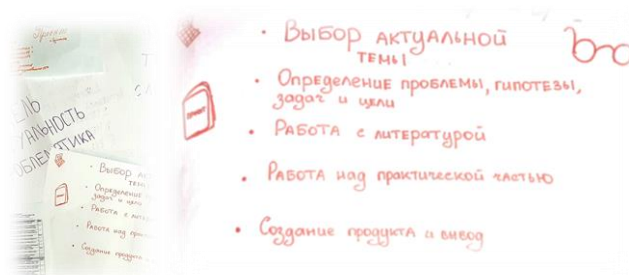 • Выбор актуальной
темы
• Определение проблемы, гипотезы,
задач и цели
• Работа с литературой
• Работа над практической частью
• Создание продукта и вывод
ПРОЕКТ
ЕЛЬ
УАЛЬНОСТЬ
ОБЛЕМАТИКА
• Выбор ак
темы
• Определение
задач и цели
• Работа с лите
• Работа над прак
• Создание продукта